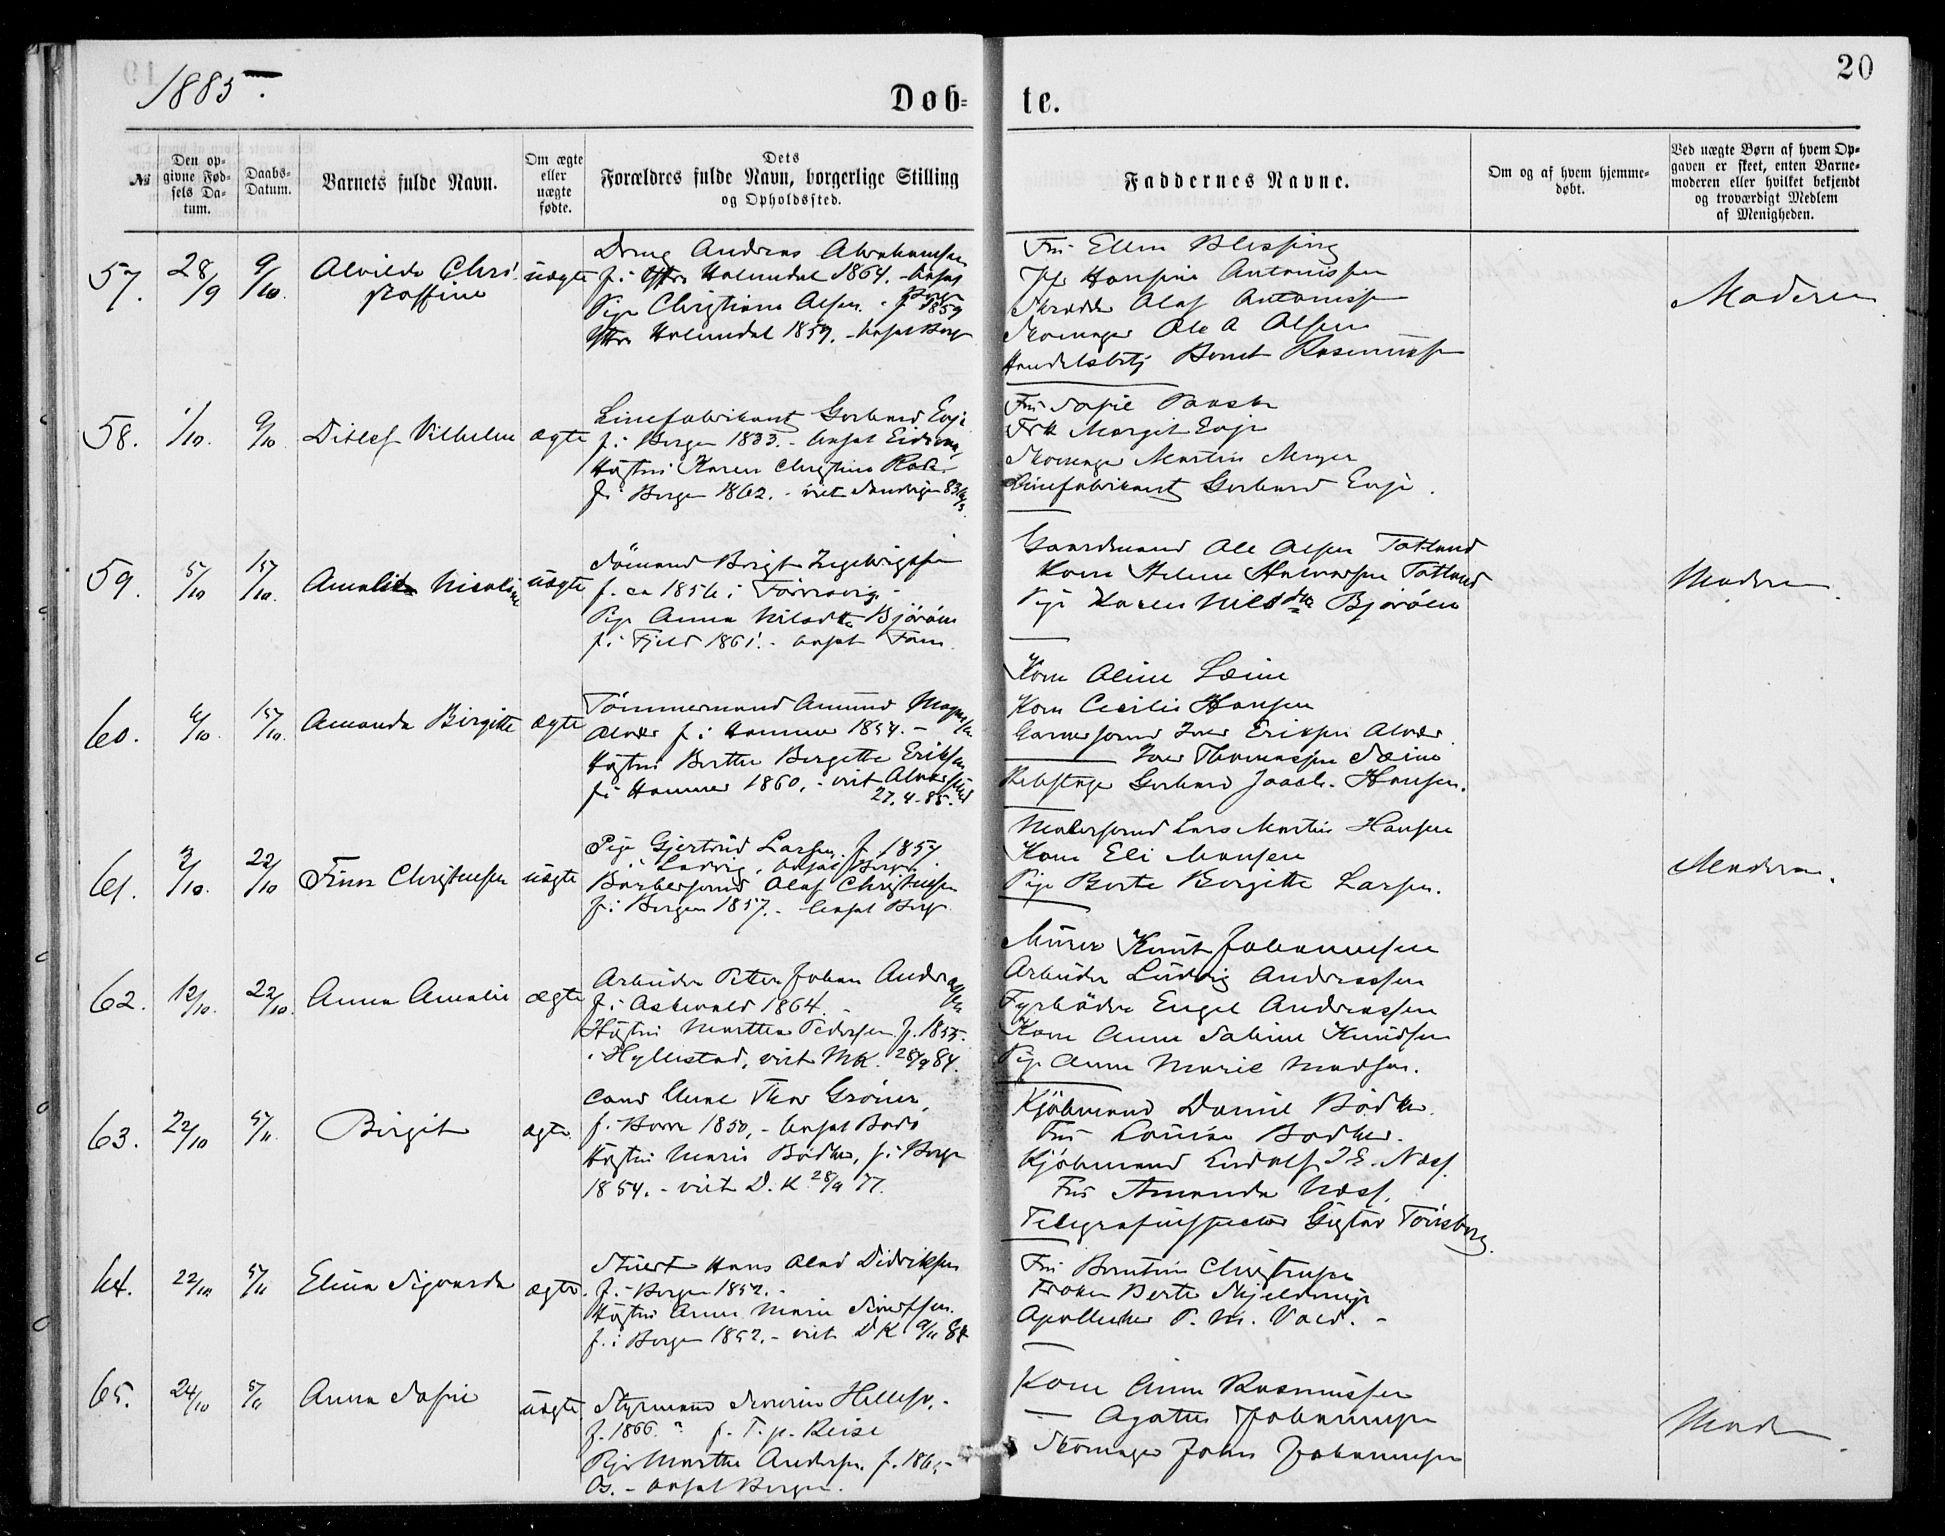 1885.
Dob-
te.
20
№
Den op-
givne Fød-
sels Da-
tum.
Daabs-
Datum.
Barnets fulde Navn.
Om ægte
eller
uægte
fødte.
Dets
Forældres fulde Navn, borgerlige Stilling
og Opholdssted.
Faddernes Navne.
Om og af hvem hjemme-
døbt.
Ved uægte Børn af hvem Op-
gaven er skeet, enten Barne-
moderen eller hvilket bekjendt
og troværdigt Medlem
af Menigheden.
57.
28/9
9/10.
Alvilde Chri-
stoffine
uægte
Dreng Andreas Abrahamsen
f. i Yttre Holmedal 1864. - bosat
Bergen
Pige Christiane Olsen. - f. 1859
Yttre Holmedal 1859. - bosat Berg
Fru Ellen Blessing
Jfr Hansine Antonissen
Skrædder Olaf Antonissen
Skomager Ole A Olsen
Handelsbtj Bernt Rasmussen
Moderen
58.
1/10.
9/10
Ditlef Vilhelm
ægte
Linefabrikant Gerhard Evje
f. i Bergen 1833. - bosat
Hustru Karen Christine
f. i Bergen 1862. - viet Sandvigen 83
Fru Sofie
Frk Margit Evje
Skomager Martin Meyer
Linefabrikant Gerhard Evje.
59.
5/10
15/10.
Amalie Nicoline
uægte
Sömand Brigt Ingebrigtsen
f. ca 1856 i
Pige Anna Nilsdtr Björöen
f. i Fjeld 1861. - bosat
Gaardmand Ole Olsen Totland
Kone Helene Halvorsen Totland
Pige Karen Nilsdtr Björöen
Moderen.
60.
6/10.
15/10.
Amanda Birgitte
ægte
Tömmermand Amund Magnussen
Alver f. i Hammer 1854. -
Hustru Berthe Bergette Eriksen
f. i Hammer 1860. - viet Alversund
27.4.85.
Kone Oline
Kone Cecilie Hansen
Garversvend Iver Eriksen Alver.
Iver Thomassen
Rebslager Gerhard Jacob. Hansen.
61.
/10.
22/10
Finn Christensen
uægte
Pige Gjertrud Larsen f. 1857
i Ladvig, bosat Bergen.
Barbersvend Olaf Christensen
f. i Bergen 1857. - bosat Berg
Malersvend Lars Martin Hansen
Kone Eli Monsen
Pige Berte Bergitte Larsen.
Moderen.
62.
12/10.
22/10.
Anna Amalie
ægte
Arbeider Peter Johan Andreassen
f. i Askevold 1864. -
Hustru Marthea Pedersen f. 1855.
i Hyllestad, viet MK. 28/9 84.
Murer Knut Johannesen
Arbeider Ludvig Andreassen
Fyrböder Engel Andreassen
Kone Anne Sabine Knudsen
Pige Anne Marie Madsen.
63.
22/10
5/11.
Birgit
ægte.
Cand Mine Thor Gröner,
f. i Borre 1850, - bosat Bodö
Hustru Marie Bödker, f. i Berge
1854. - viet D.K. 77.
Kjöbmand Daniel Bödker.
Fru Louise Bödker.
Kjöbmand Ludolf I.E. Næss.
Fru Amanda Næss.
Telegrafinspectør Gustav Tönsberg.
64.
22/10
5/11
Elina Sigvarda
ægte.
Stuert Hans Olad Didriksen
f. i Bergen 1852. -
Hustru Anne Marie Sivertsen.
f. i Bergen 1852. - viet DK 9/11 84
Fru Berntine Christensen
Frøken Berte Skjelderup
Apotheker P. M. Vaed. -
65.
24/10
5/11
Anna Sofie
uægte.
Styrmand Severin Hillesø. -
f. 1866. f. T. p. Reise
Pige Marthe Andersen. f. 186
Os. - bosat Bergen.
Kone Anne Rasmussen
— Agathe Johannessen
Skomager Johan Johannessen
Moder